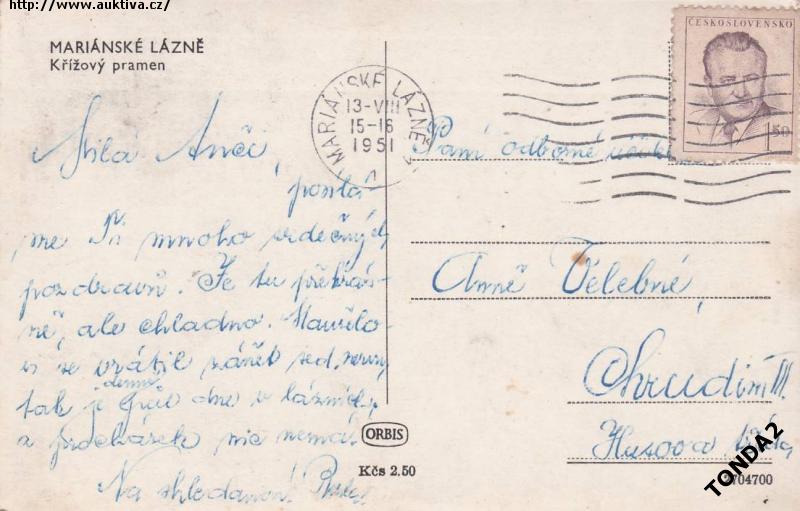 http://www.auktiva.cz/
MARIÁNSKÉ LÁZNĚ
Křížový pramen
ČESKOSLOVENSKO
1.50
MARIÁNSKÉ LÁZNĚ
13-VIII
15-16
1951
Milá Anči,
posílá-
me Ti mnoho srdečných
pozdravů. Je tu překrás-
ně, ale chladno.
se vrátil zánět
tak je denně dne v lázních
a procházek nic nemá.
Na shledanou!
Paní odborné
Anně Velebné,
Chrudim III
Husova
ORBIS
Kčs 2.50
704700
TONDA2